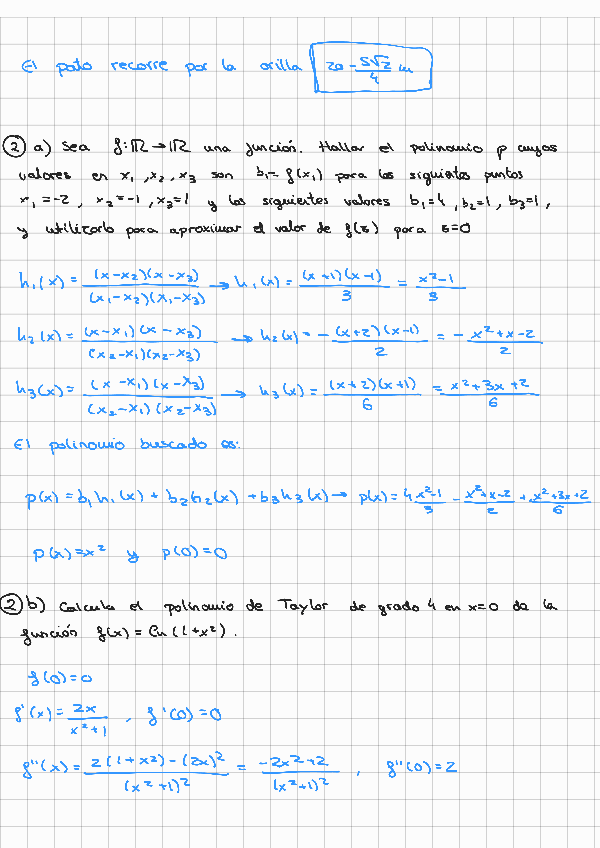 El pato recorre por la orilla 20 - 5√2/4 m
2) a) Sea f: ℝ → ℝ una función. Hallar el polinomio p cuyos
valores en x₁, x₂, x₃ son bᵢ = f(xᵢ) para los siguientes puntos
x₁ = -2, x₂ = -1, x₃ = 1 y los siguientes valores b₁ = 4, b₂ = 1, b₃ = 1,
y utilizarlo para aproximar el valor de f(z) para z = 0
h₁(x) = (x-x₂)(x-x₃)/(x₁-x₂)(x₁-x₃) → h₁(x) = (x+1)(x-1)/3 = x²-1/3
h₂(x) = (x-x₁)(x-x₃)/(x₂-x₁)(x₂-x₃) → h₂(x) = -(x+2)(x-1)/2 = -x²+x-2/2
h₃(x) = (x-x₁)(x-x₃)/(x₂-x₁)(x₂-x₃) → h₃(x) = (x+2)(x+1)/6 = x²+3x+2/6
El polinomio buscado es:
p(x) = b₁h₁(x) + b₂h₂(x) + b₃h₃(x) → p(x) = 4 x²-1/3 - x²+x-2/2 + x²+3x+2/6
p(x) = x² y p(0) = 0
2) b) Calcula el polinomio de Taylor de grado 4 en x=0 de la
función f(x) = Ln(1+x²).
f(0) = 0
f'(x) = 2x/x²+1, f'(0) = 0
f''(x) = 2(1+x²)-(2x)²/(x²+1)² = -2x²+2/(x²+1)², f''(0) = 2